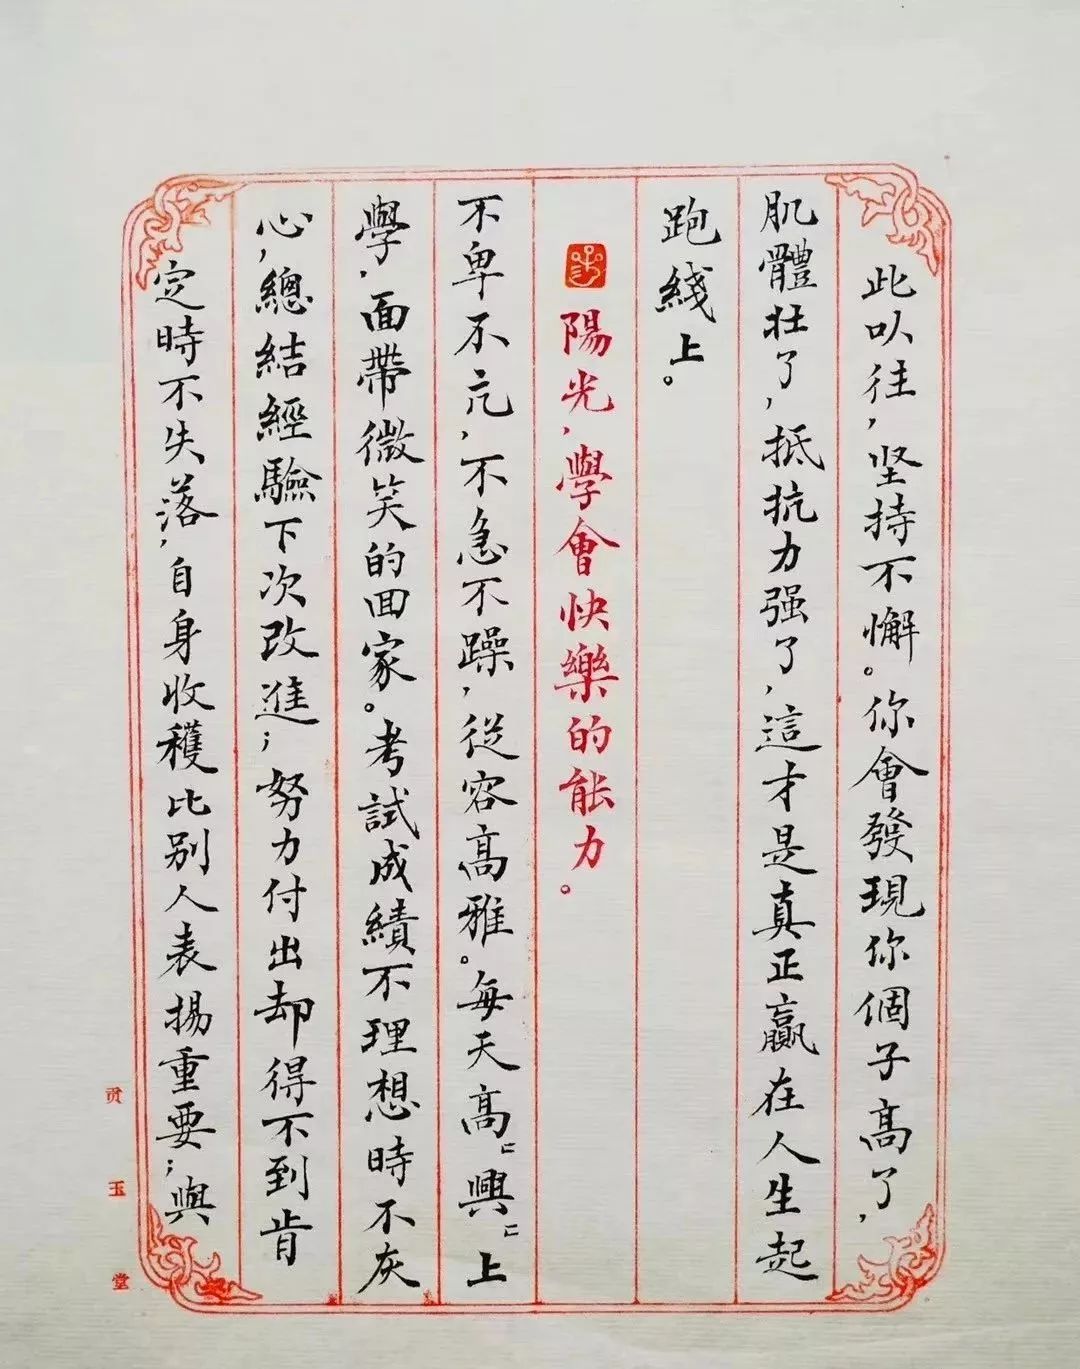 此以往，坚持不懈。你會發現你個子高了，
肌體壯了，抵抗力强了，這才是真正贏在人生起
跑綫上。
陽光，學會快樂的能力。
不卑不亢，不急不躁，從容高雅。每天高〻興〻上
學，面帶微笑的回家。考試成績不理想時不灰
心，總結經驗下次改進；努力付出却得不到肯
定時不失落，自身收穫比别人表揚重要；與
贡玉堂